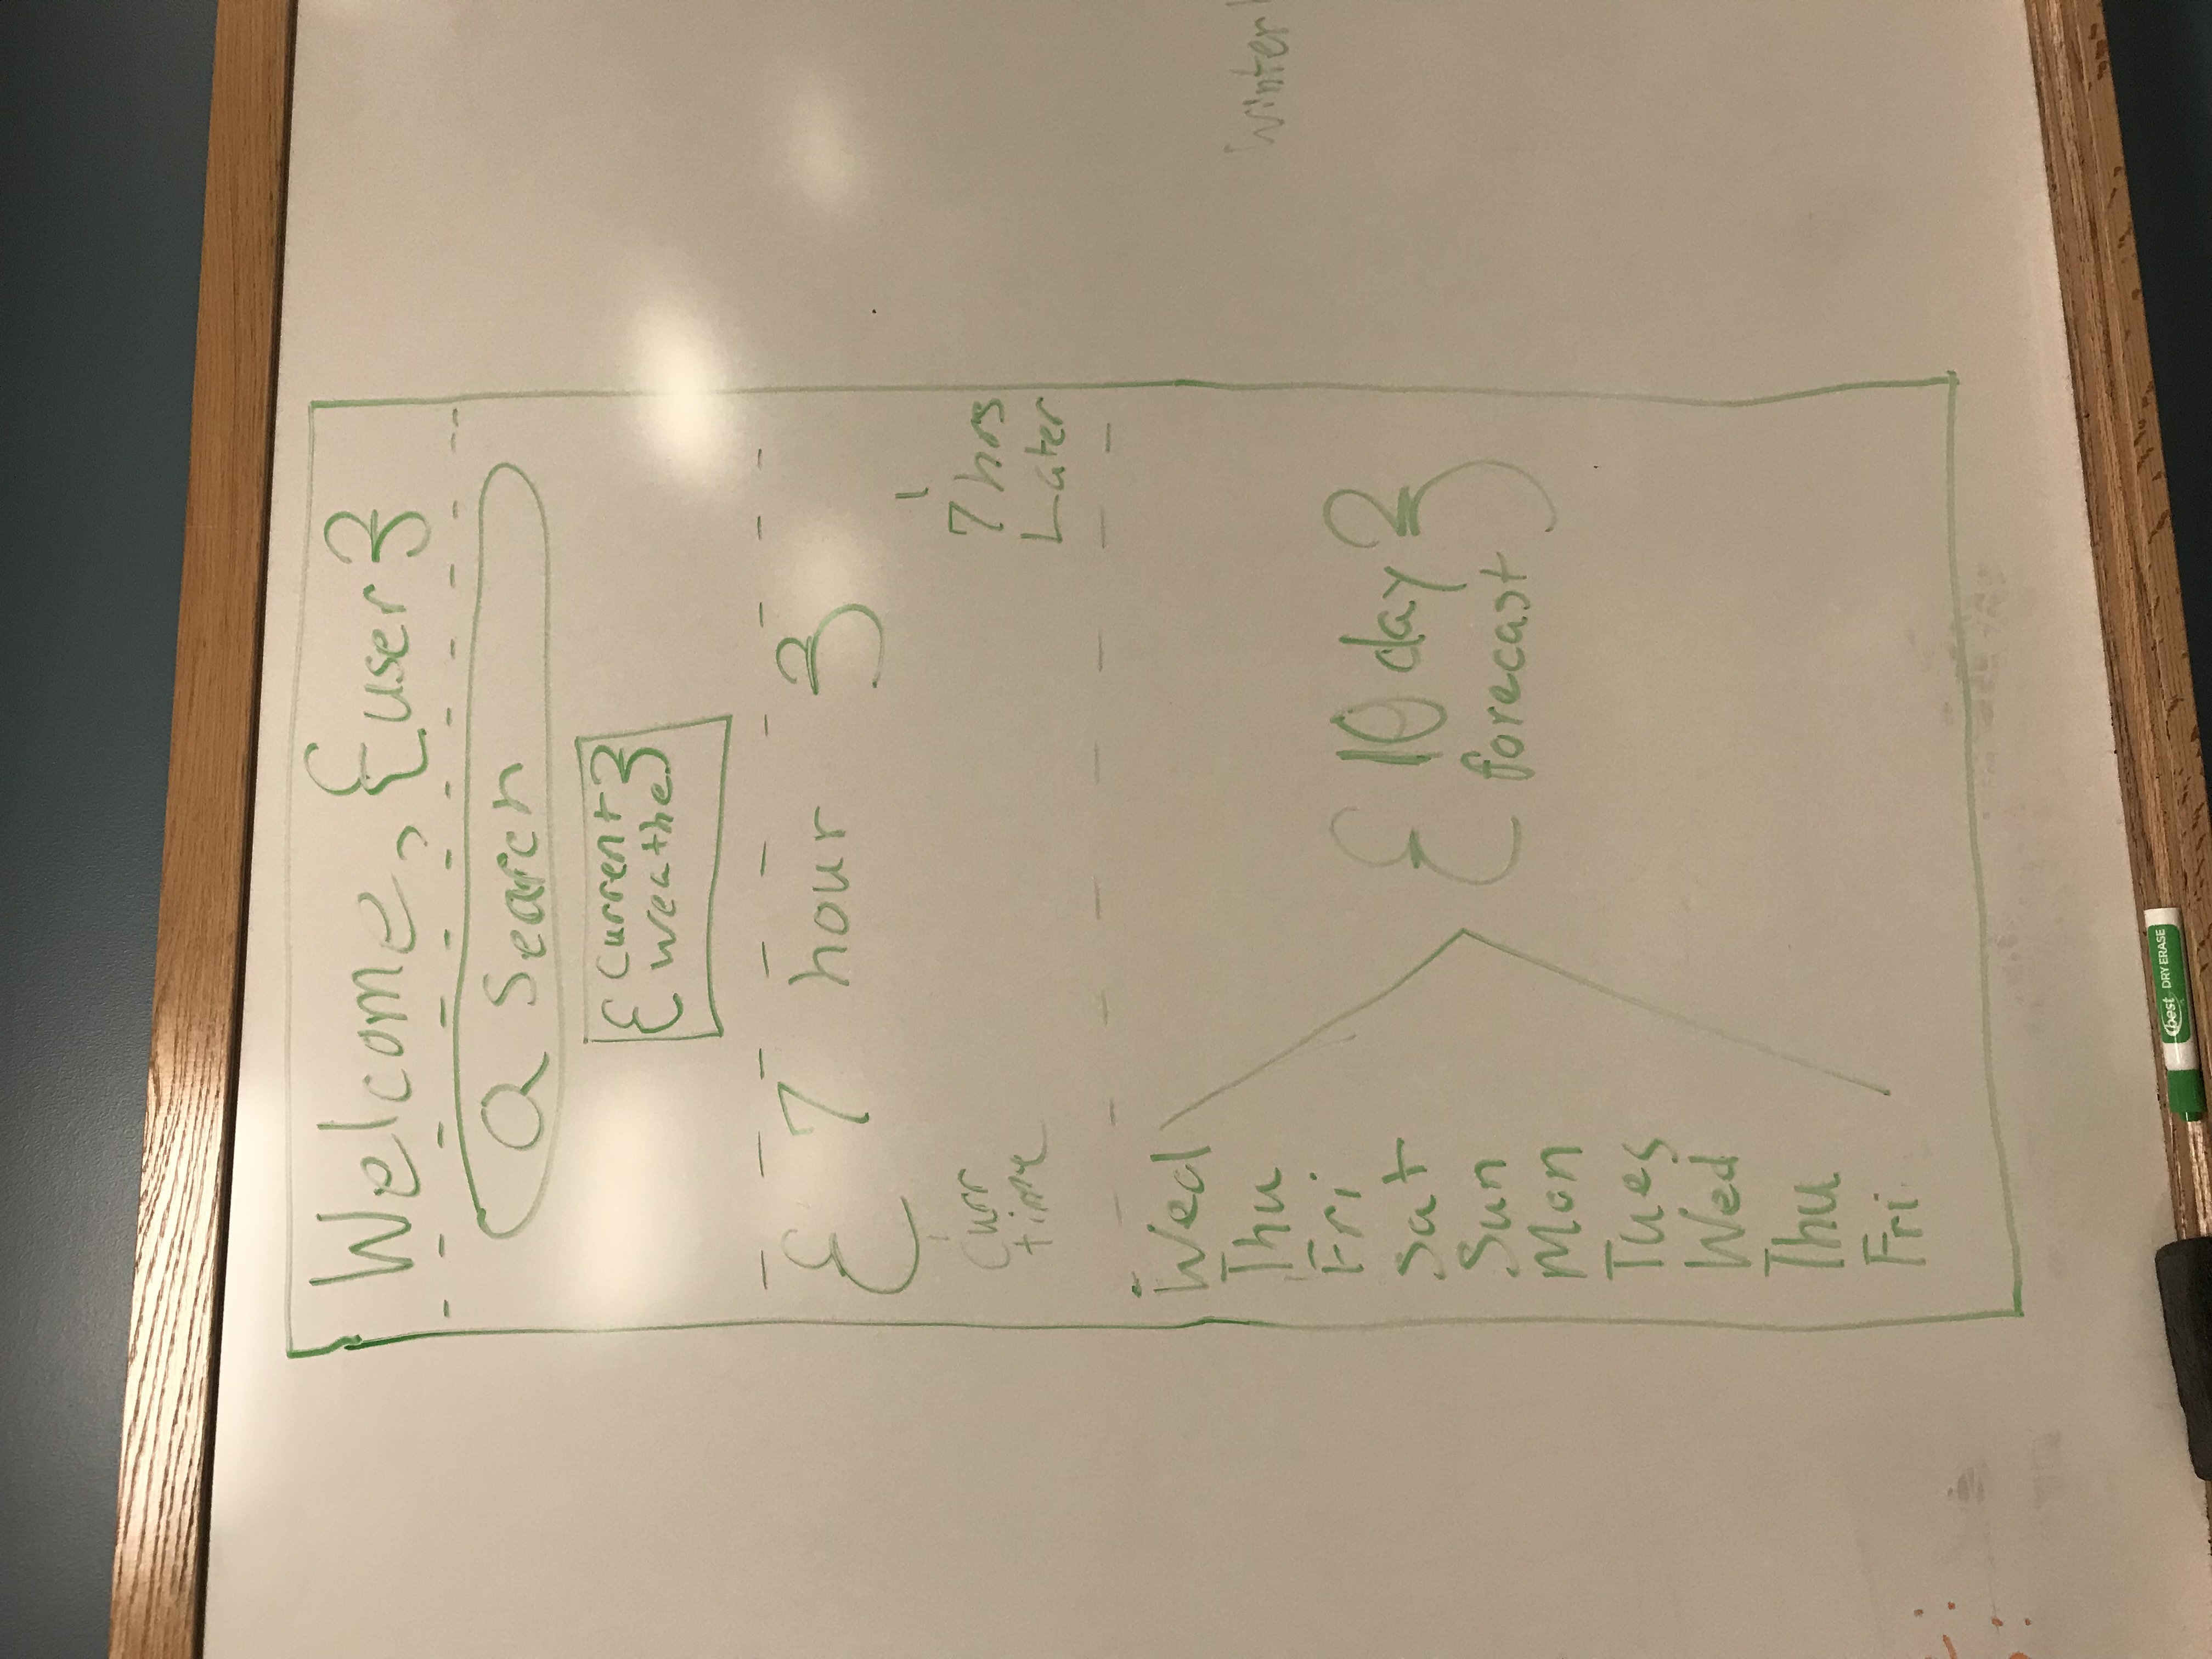 Welcome, {user}
Search
{current
weathe}
{7 hour}
Curr
time
7 hrs
Later
Wed
Thu
Fri
Sat
Sun
Mon
Tues
Wed
Thu
Fri
{10 day}
forecast
Winter
best DRY ERASE